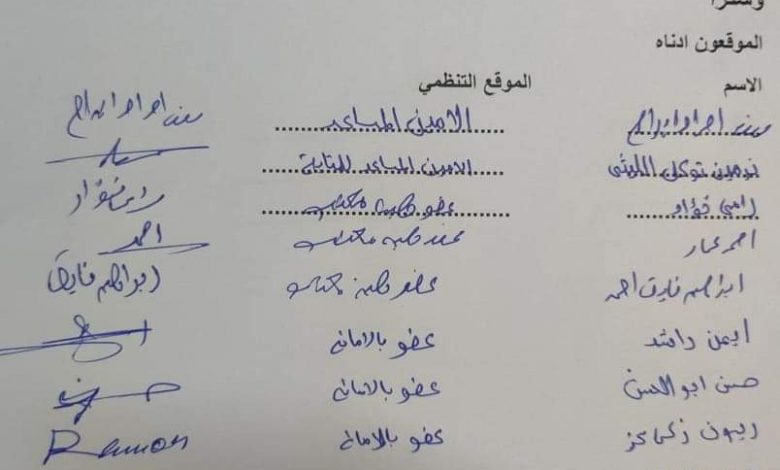 وشكرا
الموقعون ادناه
الاسم الموقع التنظمي
الامين المساعد
نرمين توكل الامين المساعد للمتابعة
رامي فؤاد عضو هيئة مكتب رامي فؤاد
احمد عمار عضو هيئة مكتب احمد
ابراهيم فايق احمد عضو هيئة مكتب ابراهيم فايق
ايمن راشد عضو بالامانة
حسن ابو الحسن عضو بالامانة
زكي عضو بالامانة Ramon